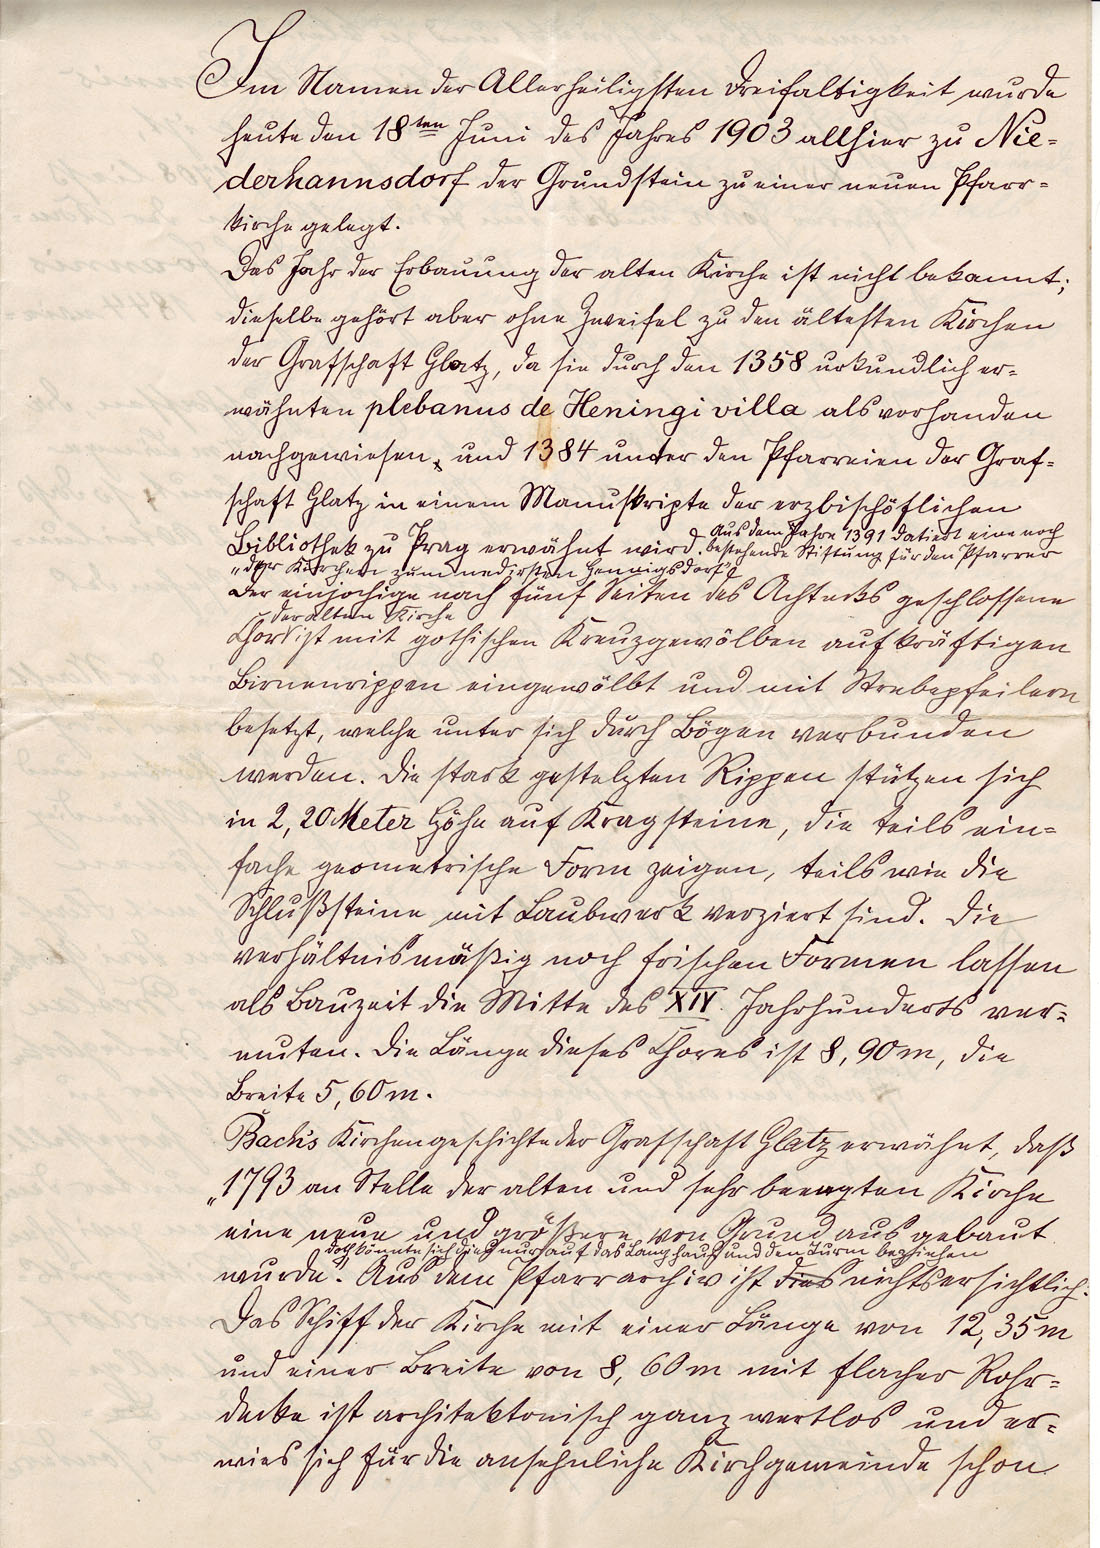 Im Namen der Allerheiligsten Dreifaltigkeit wurde
heute den 18ten Juni des Jahres 1903 allhier zu Nie=
derhannsdorf der Grundstein zu einer neuen Pfarr=
kirche gelegt.
Das Jahr der Erbauung der alten Kirche ist nicht bekannt;
dieselbe gehört aber ohne Zweifel zu den ältesten Kirchen
der Grafschaft Glatz, da sie durch den 1358 urkundlich er=
wähnten plebanus de Heningi villa als vorhanden
nachgewiesen, und 1384 unter den Pfarreien der Graf=
schaft Glatz in einem Manuskripte der erzbischöflichen
Bibliothek zu Prag erwähnt wird. Aus dem Jahre 1391 datiert eine noch
bestehende Stiftung für den Pfarrer
"der Kirchen zum nedirsten Hennigsdorf"
Der einjochige nach fünf Seiten des Achtecks geschlossene
der alten Kirche
Chor ist mit gothischen Kreuzgewölben auf kräftigen
Birnenrippen eingewölbt und mit Strebepfeilern
besetzt, welche unter sich durch Bögen verbunden
werden. Die stark gestelzten Rippen stützen sich
in 2,20 Meter Höhe auf Kragsteine, die teils ein=
fache geometrische Form zeigen, teils wie die
Schlußsteine mit Laubwerk verziert sind. Die
verhältnismäßig noch frischen Formen lassen
als Bauzeit die Mitte des XIV. Jahrhunderts ver=
muten. Die Länge dieses Chores ist 8,90 m, die
Breite 5,60 m.
Bach's Kirchengeschichte der Grafschaft Glatz erwähnt, daß
"1793 an Stelle der alten und sehr beengten Kirche
eine neue und größere von Grund aus gebaut
doch könnte sich dies nur auf das Langhaus und den Turm beziehen
wurde". Aus dem Pfarrarchiv ist dies nichts ersichtlich.
Das Schiff der Kirche mit einer Länge von 12,35 m
und einer Breite von 8,60 m mit flacher Rohr=
decke ist architektonisch ganz wertlos und er=
wies sich für die ansehnliche Kirchgemeinde schon